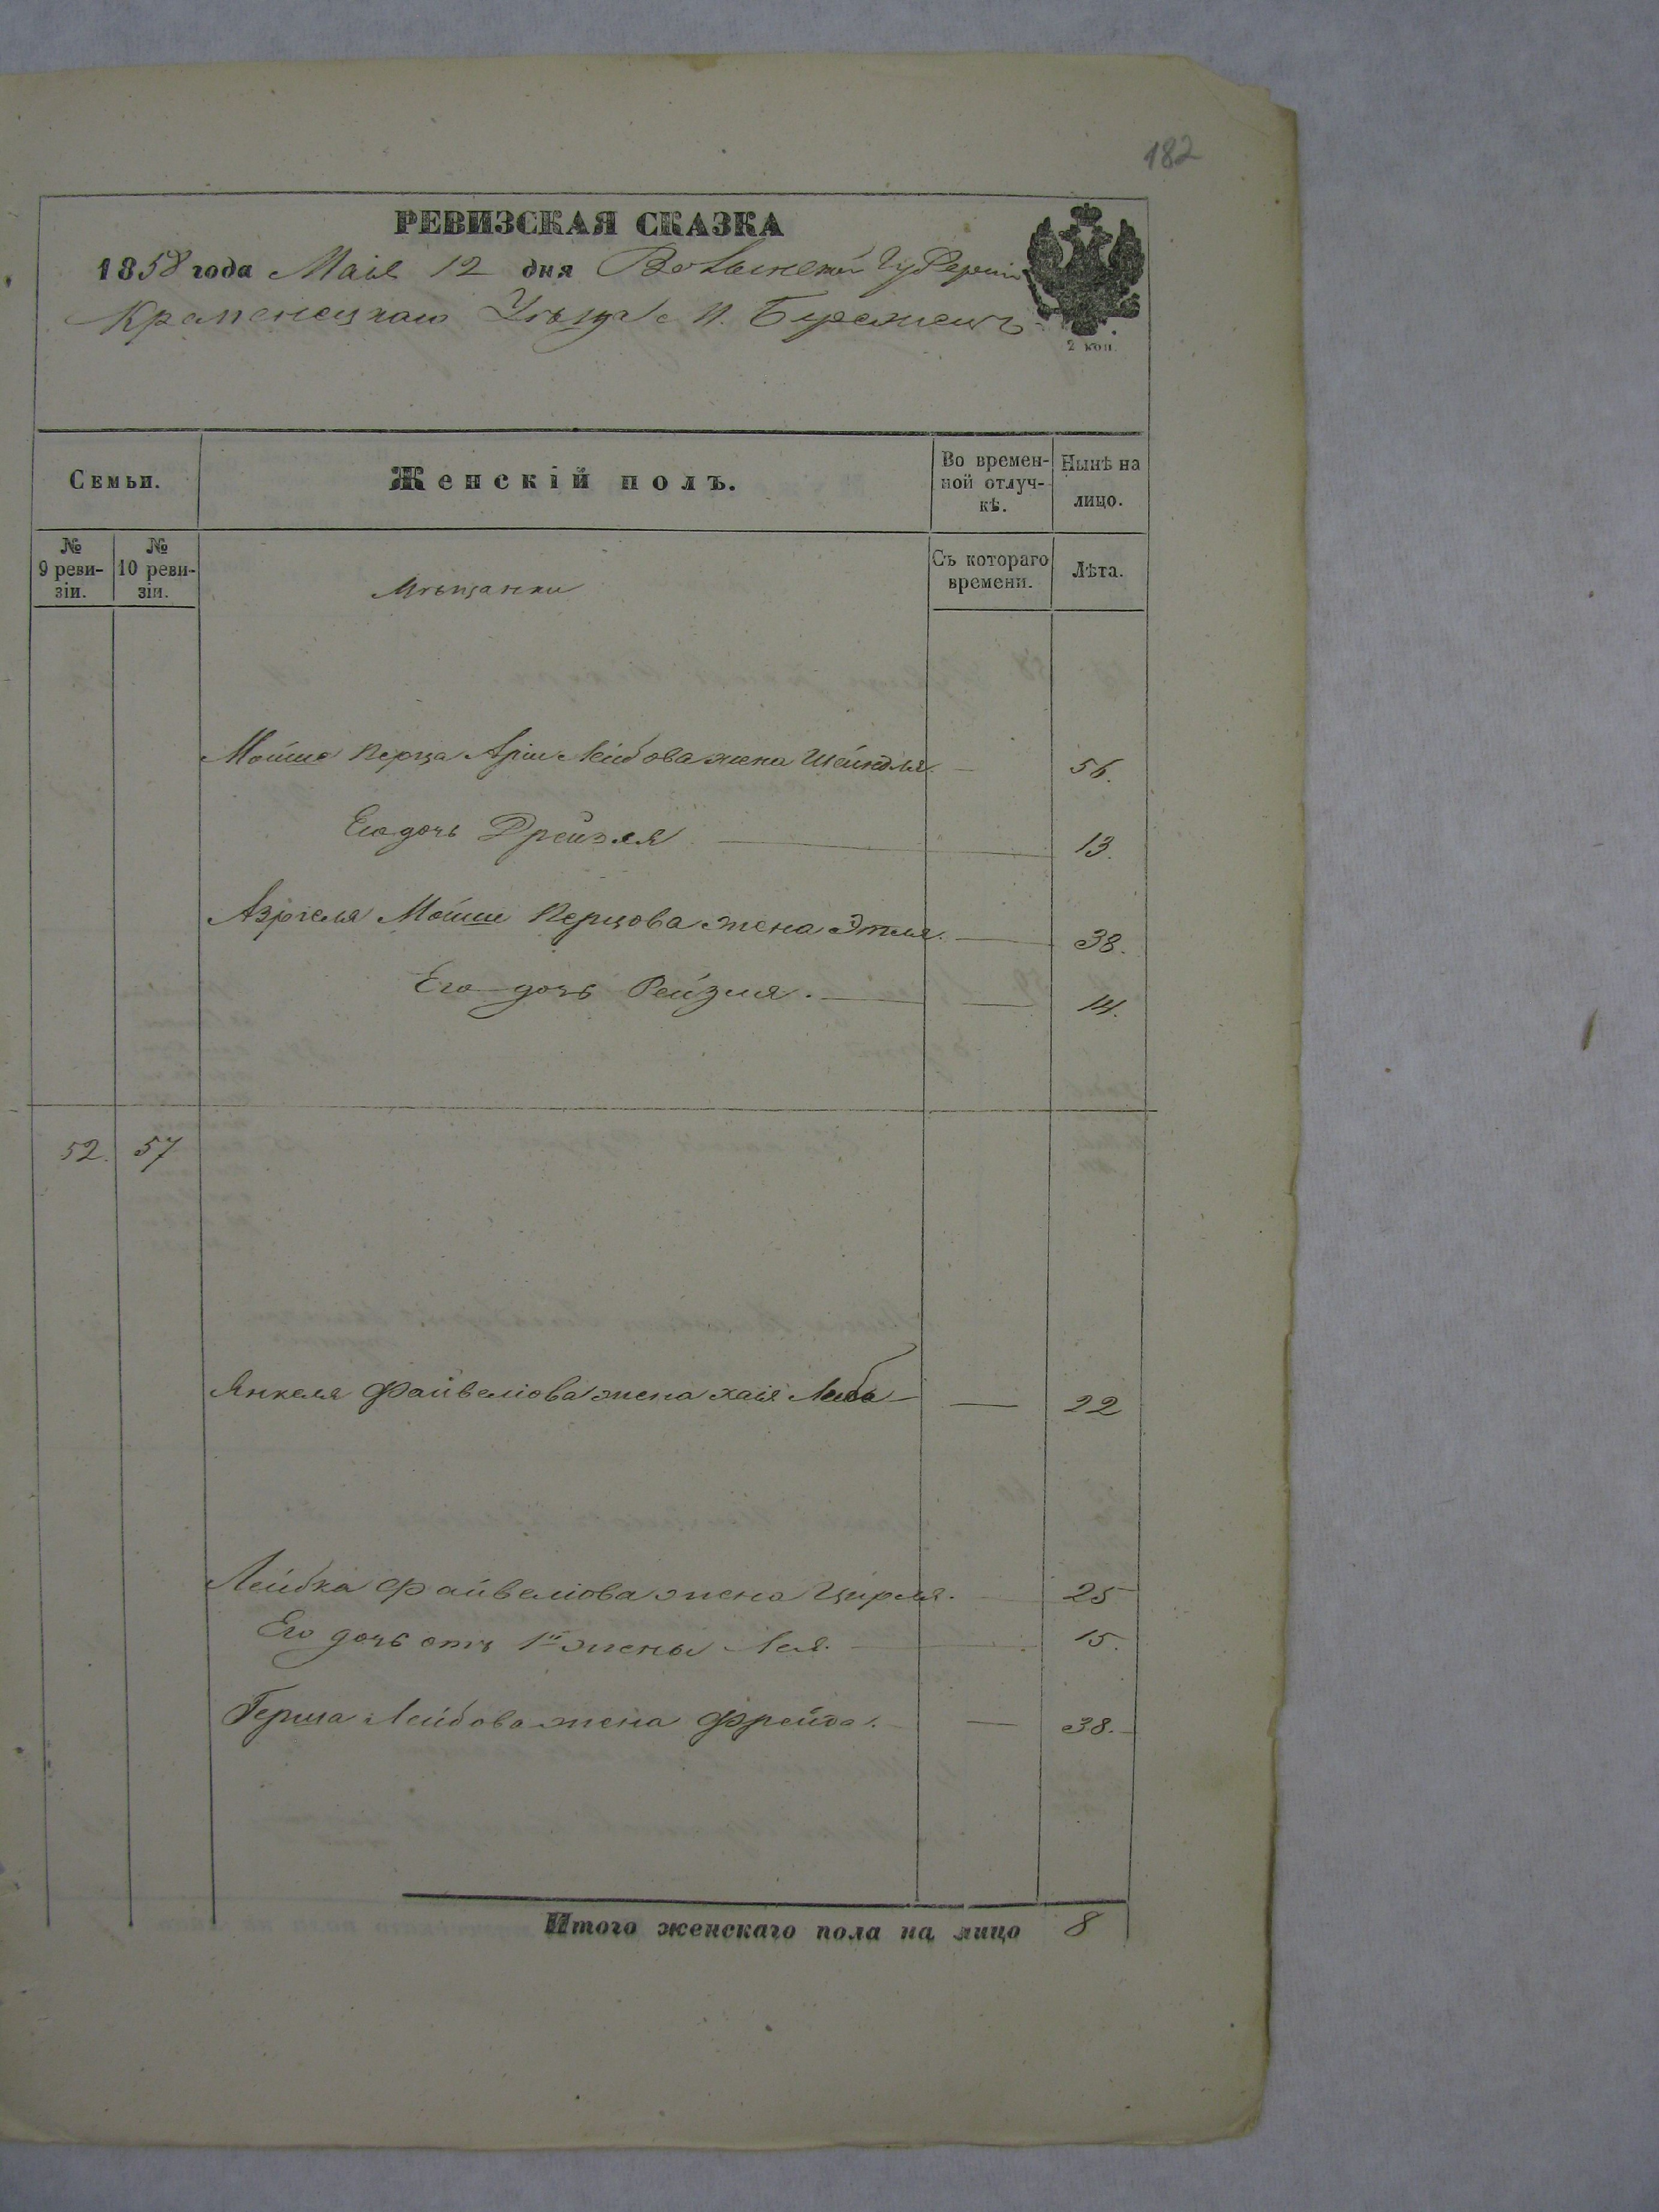 182
РЕВИЗСКАЯ СКАЗКА
1858 года Маія 12 дня Волынской Губерніи
Кременецкаго Уѣзда М. Бережецъ
2 коп.
Семьи.
Женскій полъ.
Во времен-
ной отлуч-
кѣ.
Нынѣ на
лицо.
№
9 реви-
зіи.
№
10 реви-
зіи.
Мѣщанки
Съ котораго
времени.
Лѣта.
Мойше Перца Арiи Лейбова жена Шейндля. — 56.
Его дочь Дрейзля — 13.
Азріеля Мойше Перцова жена Этля. — 38.
Его дочь Рейзля. — 14.
52. 57
Янкеля Файвеліова жена Хаія Либа — 22
Лейбка Файвеліова жена Цирля. 25
Его дочь отъ 1й жены Лея. — 15.
Герша Лейбова жена Фрейда. — 38.
Итого женскаго пола на лицо 8